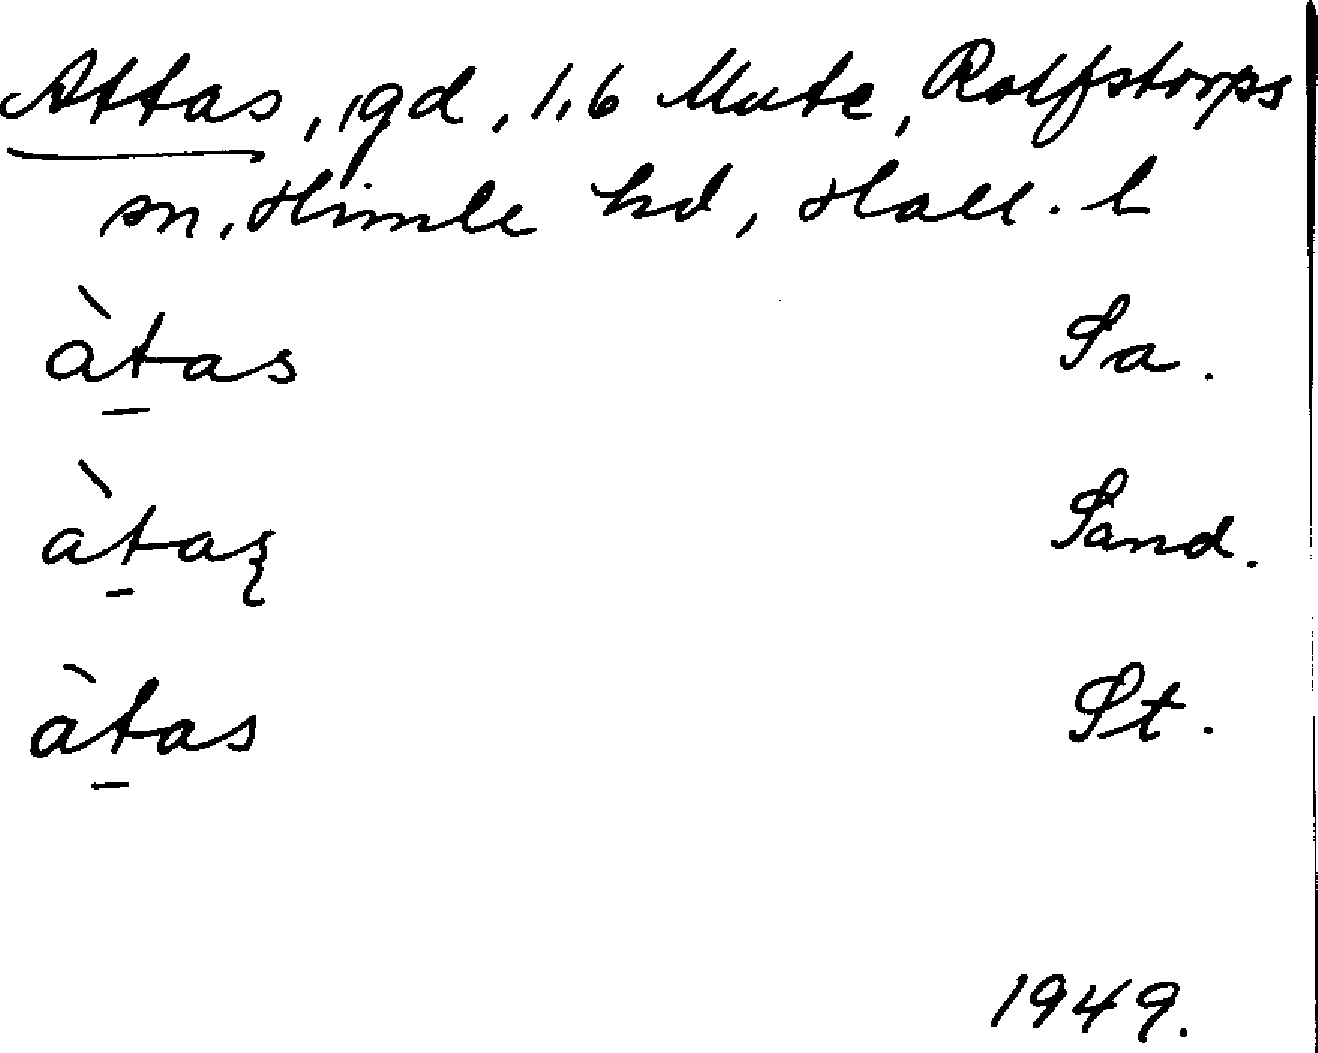 Attas, gd, 1,6 Mute, Rolfstorps
sn, Himle hd, Hall. l
àt̠as Sa.
àt̠aʂ Sand.
àt̠as St.
1949.